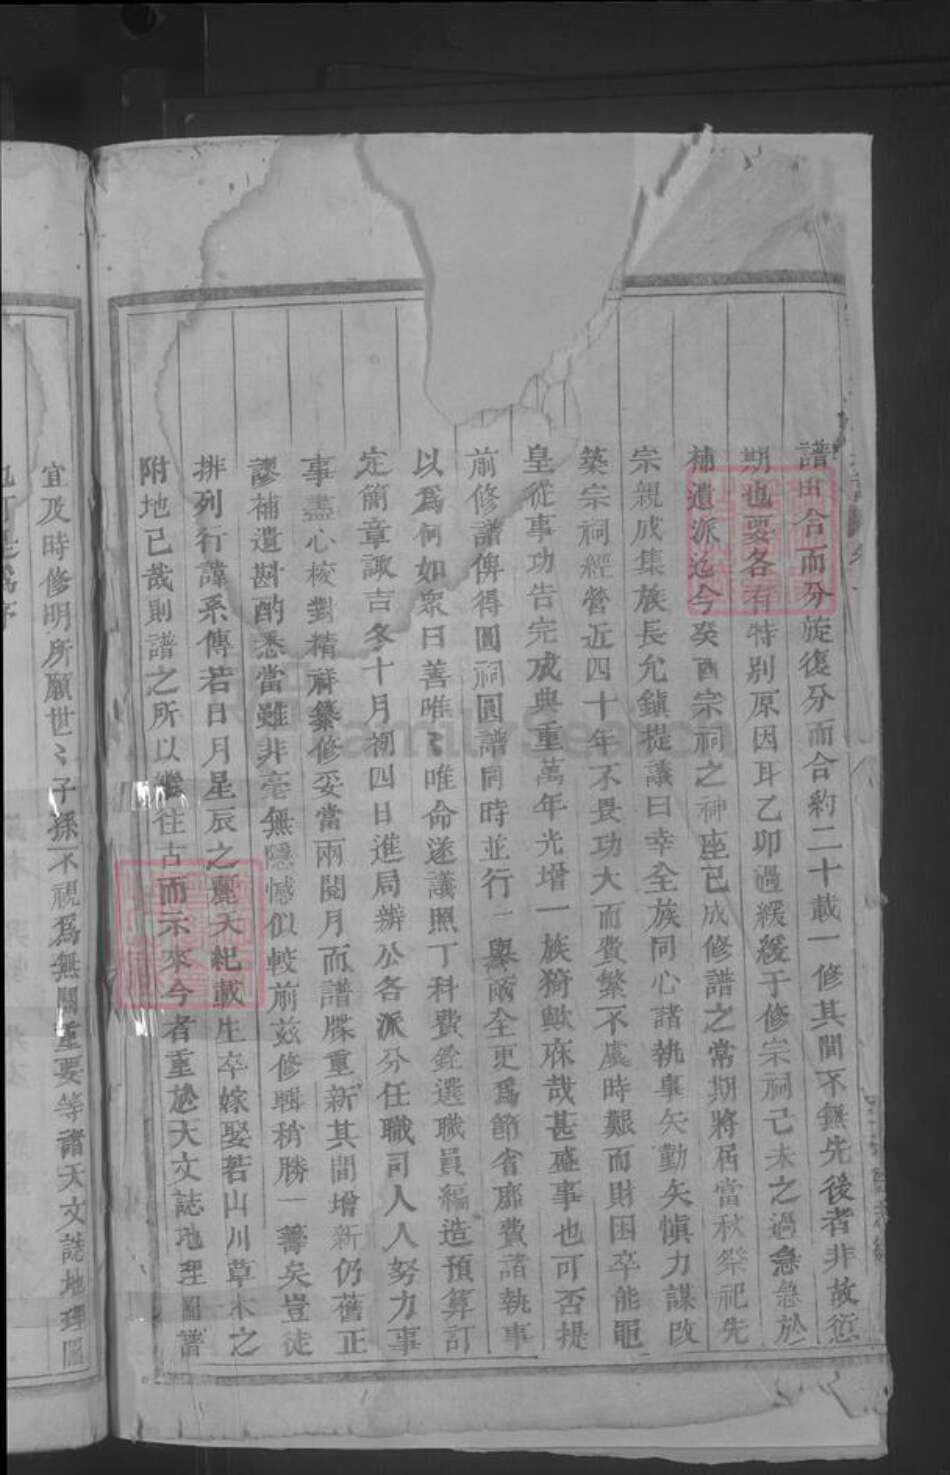 譜由合而分旋復分而合約二十載一修其間不無先後者非故愆
期也要各有特別原因耳乙卯過緩緩于修宗祠己未之過急急於
補遺派迄今癸酉宗祠之神座已成修譜之常期將屆當秋祭祀先
宗親咸集族長允鎮提議曰幸全族同心諸執事矢勤矢慎力謀改
築宗祠經營近四十年不畏功大而費繁不虞時艱而財困卒能黽
皇從事功告完成典重萬年光增一族猗歟庥哉甚盛事也可否提
前修譜俾得圓祠圓譜同時並行一舉兩全更爲節省靡費諸執事
以爲何如眾曰善唯〻唯命遂議照丁科費銓選職員編造預算訂
定簡章諏吉冬十月初四日進局辦公各派分任職司人人努力事
事盡心校對精詳纂修妥當兩閱月而譜牒重新其間增新仍舊正
謬補遺斟酌悉當雖非毫無隱憾似較前茲修輯稍勝一籌矣豈徒
排列行諱系傳若日月星辰之麗天紀載生卒嫁娶若山川草木之
附地已哉則譜之所以繼往古而示來今者重於天文誌地理圖譜
宜及時修明所願世〻子孫不視爲無關重要等諸天文誌地理圖
FamilySearch